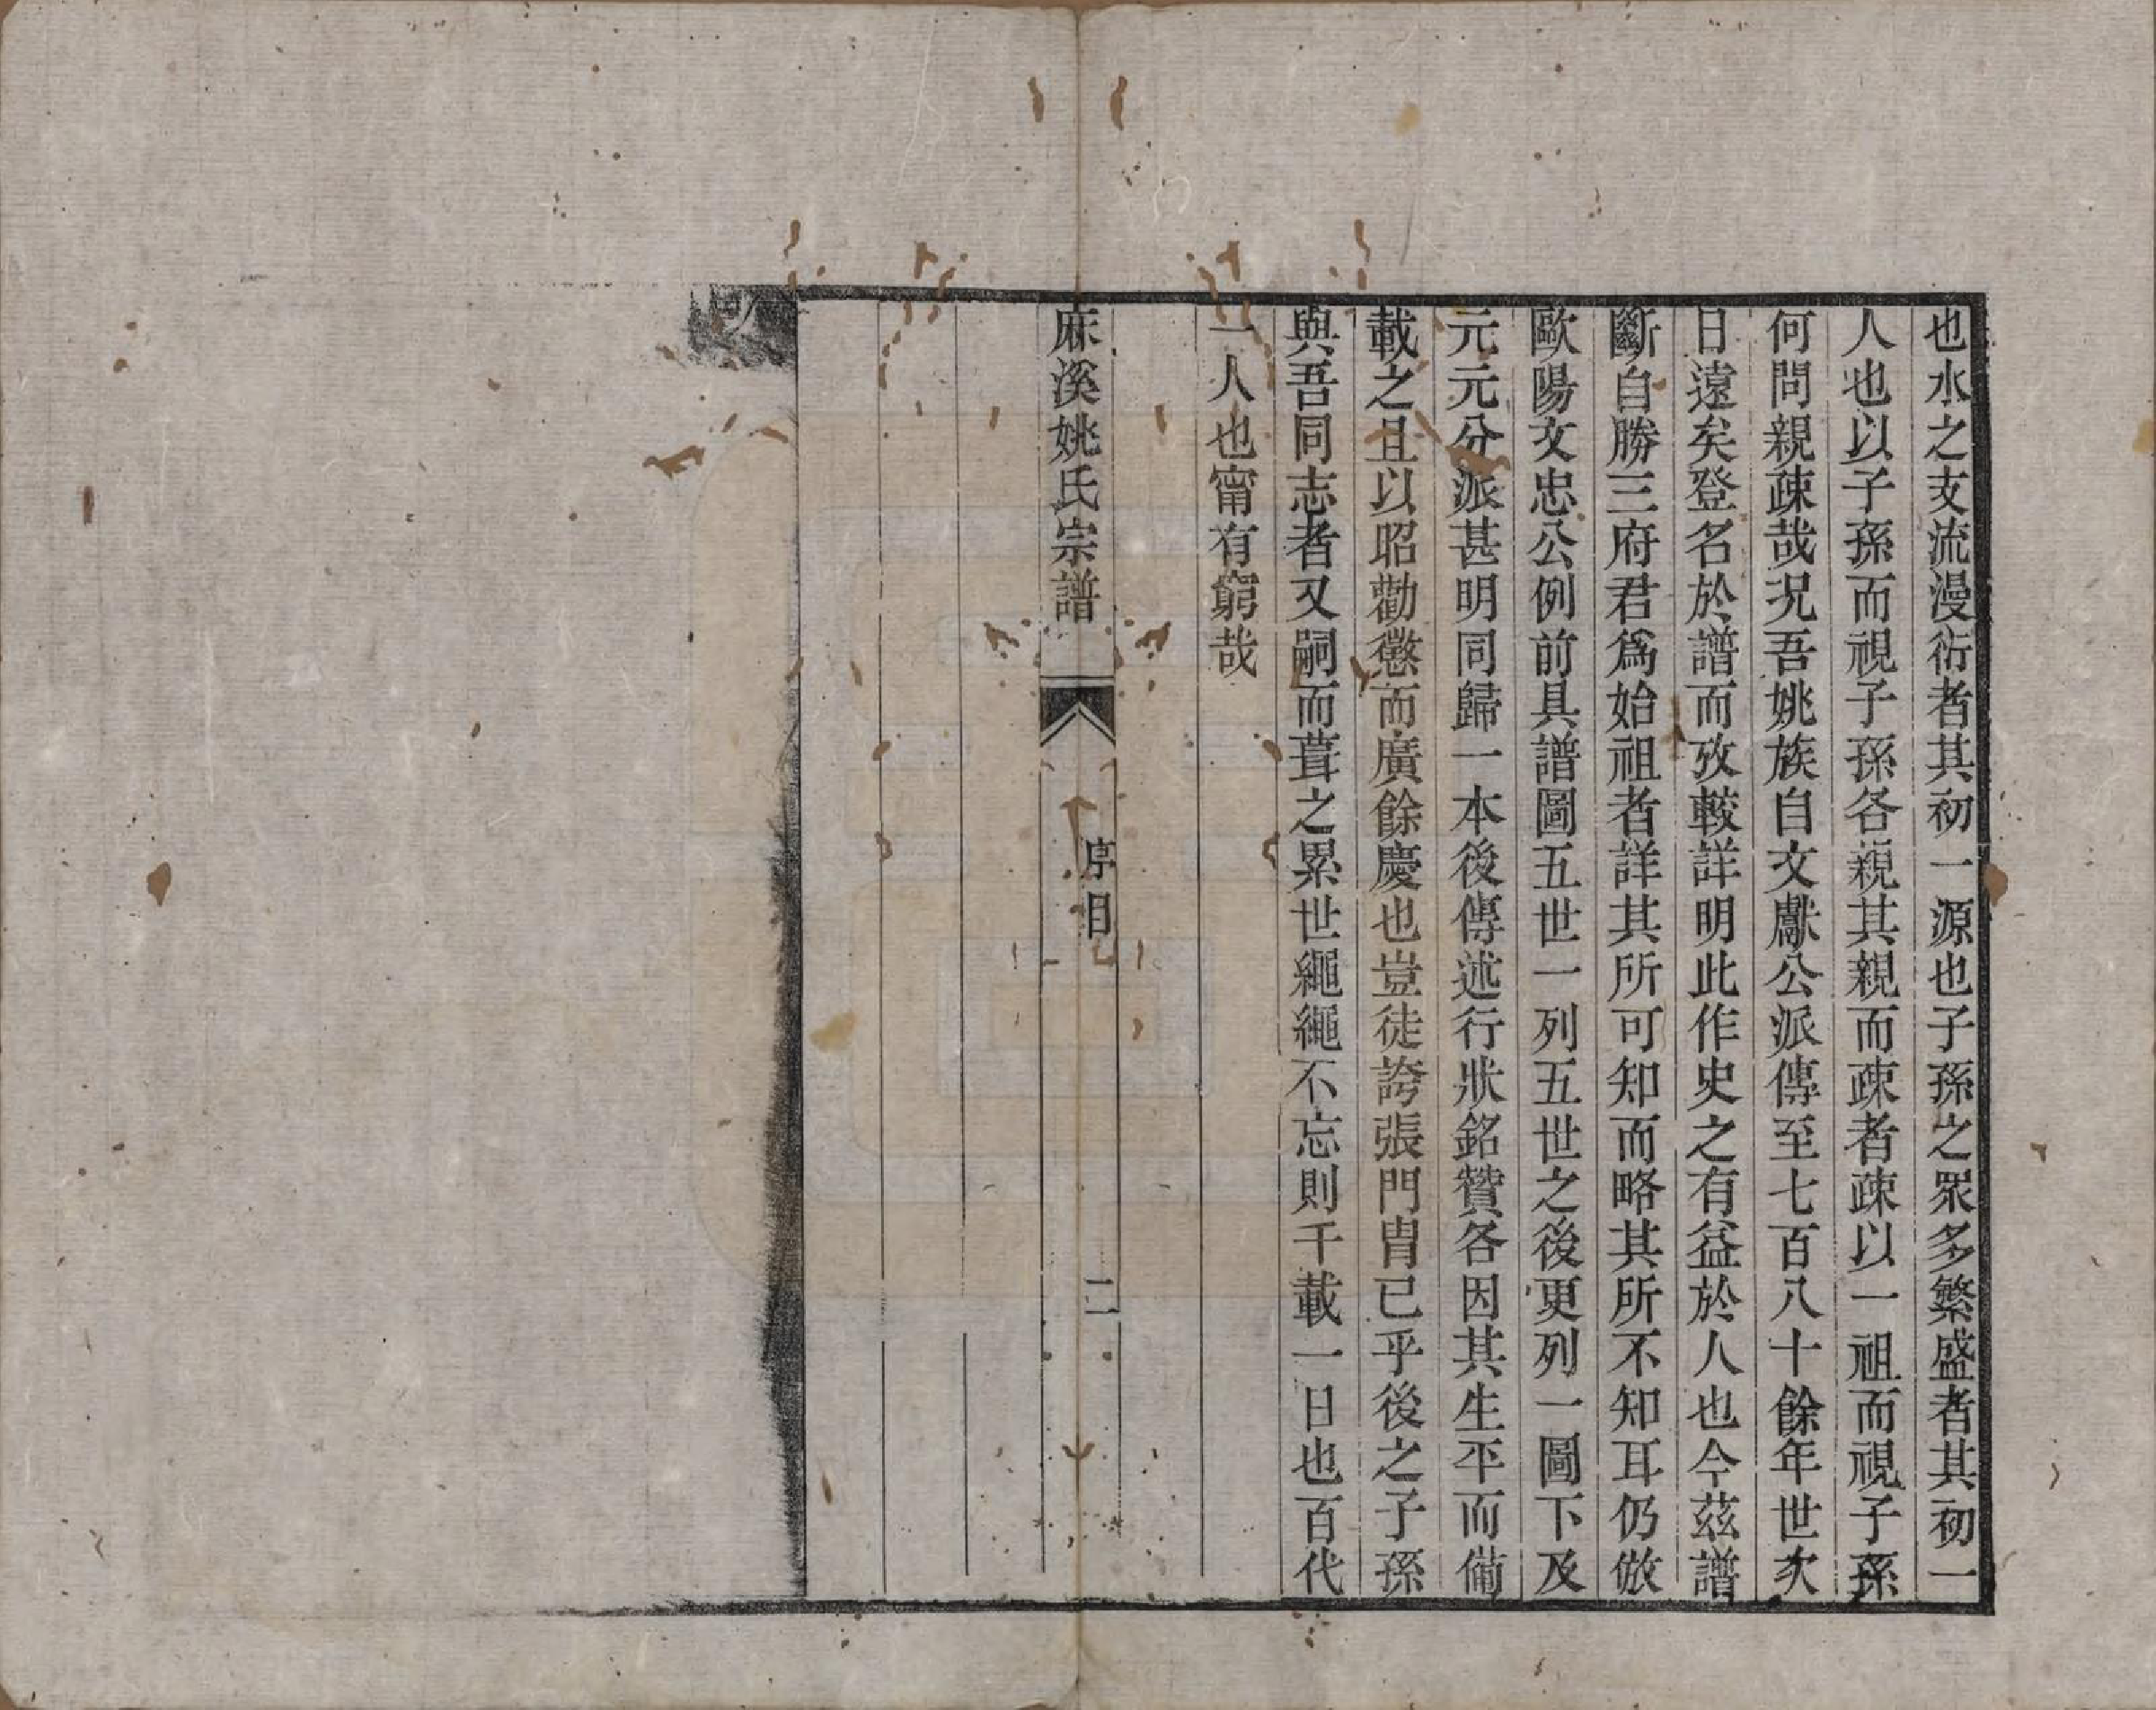 也水之支流漫衍者其初一源也子孫之眾多繁盛者其初一
人也以子孫而視子孫各親其親而疎者疎以一祖而視子孫
何問親疎哉况吾姚族自文獻公派傳至七百八十餘年世次
日遠矣登名於譜而攷較詳明此作史之有益於人也今茲譜
斷自勝三府君爲始祖者詳其所可知而略其所不知耳仍倣
歐陽文忠公例前具譜圖五世一列五世之後更列一圖下及
元元分派甚明同歸一本後傳述行狀銘贊各因其生平而備
載之且以昭勸懲而廣餘慶也豈徒誇張門胄已乎後之子孫
與吾同志者又嗣而葺之累世繩繩不忘則千載一日也百代
一人也甯有窮哉
麻溪姚氏宗譜
序目
二